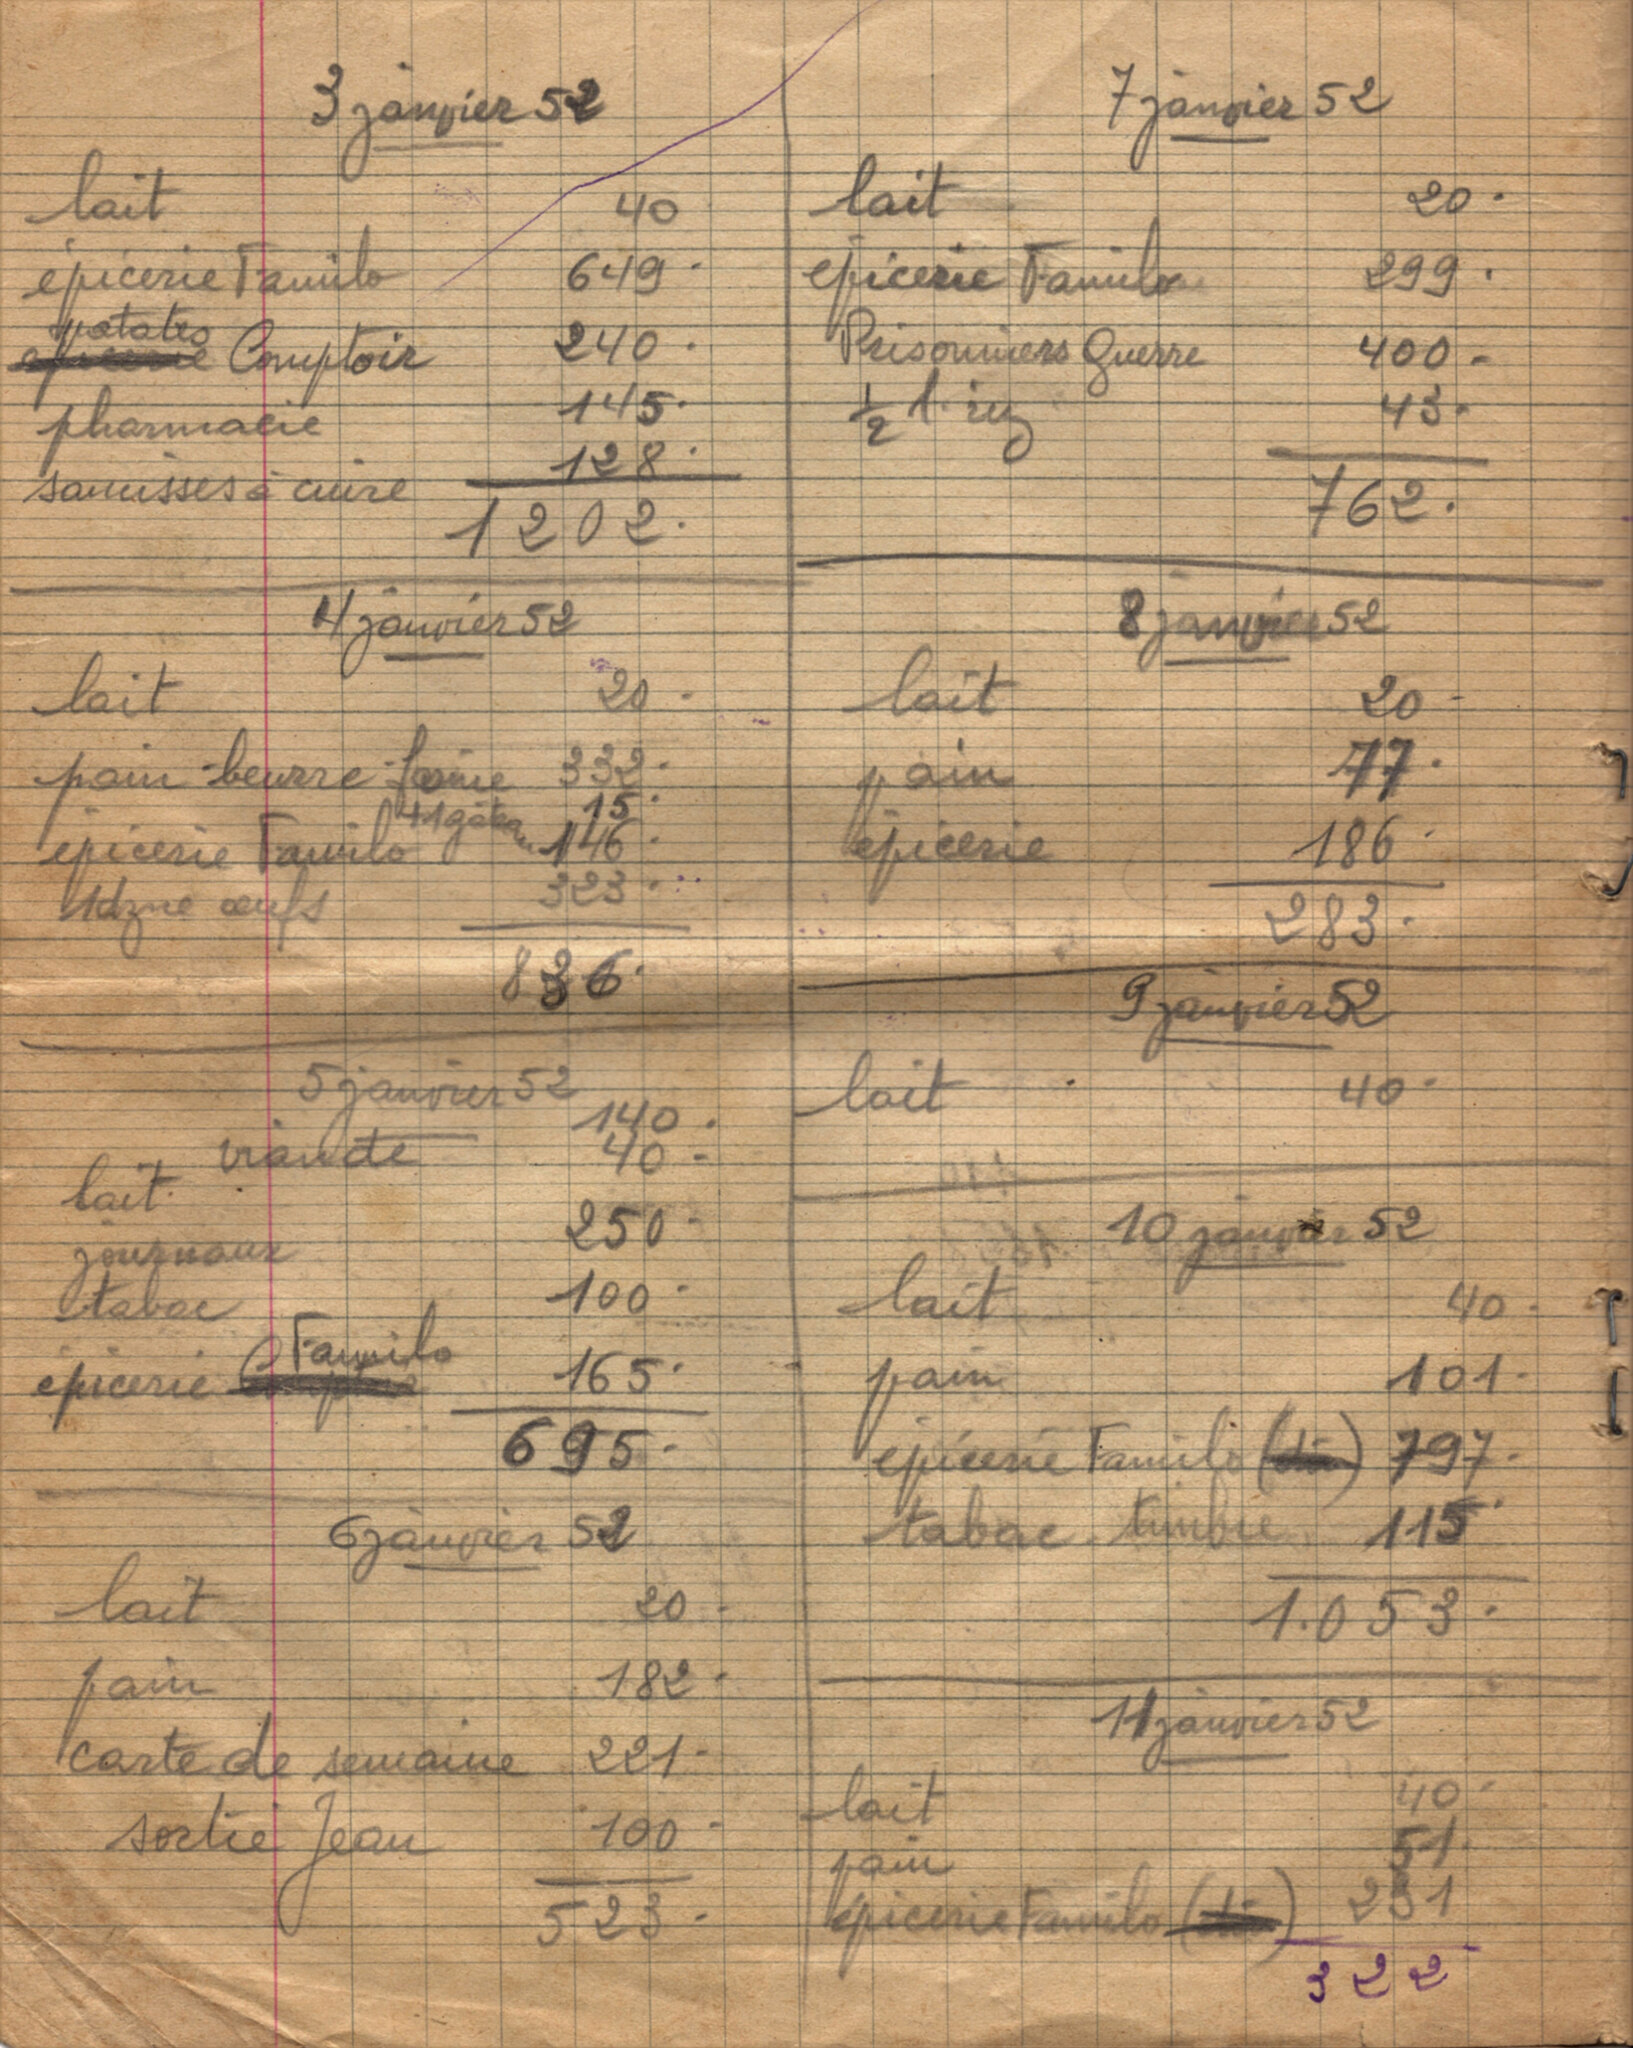 3 janvier 52
lait 40
épicerie Familo 649.
patates
Comptoir 240.
pharmacie 145.
saucisses à cuire 128.
1202.
4 janvier 52
lait 20 -
pain - beurre - farine 332.
+ 1 gâteau 15.
épicerie Familo 146.
1 dzne œufs 323.
836.
5 janvier 52
viande 140.
lait. 40 -
journaux 250 -
tabac 100 -
Familo
épicerie 165.
695.
6 janvier 52
lait 20 -
pain 182 -
carte de semaine 221 -
sortie Jean 100 -
523 -
7 janvier 52
lait 20.
épicerie Familo 299.
Prisonniers Guerre 400 -
½ l. riz 43.
762.
8 janvier 52
lait 20 -
pain 77.
épicerie 186.
283.
9 janvier 52
lait 40 -
10 janvier 52
lait 40 -
pain 101 -
épicerie Familo 797.
tabac - timbre 115.
1.053.
11 janvier 52
lait 40 -
pain 51.
épicerie Familo 231
322